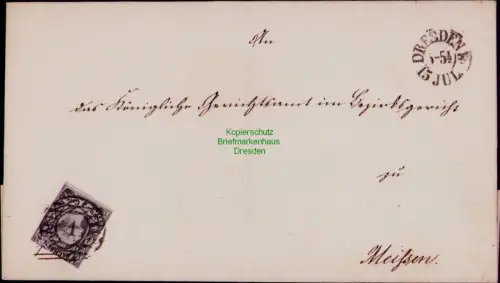 An
DRESDEN
15 JUL.
das Königliche Gerichtsamt im Bezirksgericht
Kopierschutz
Briefmarkenhaus
Dresden
zu
1
Meißen.